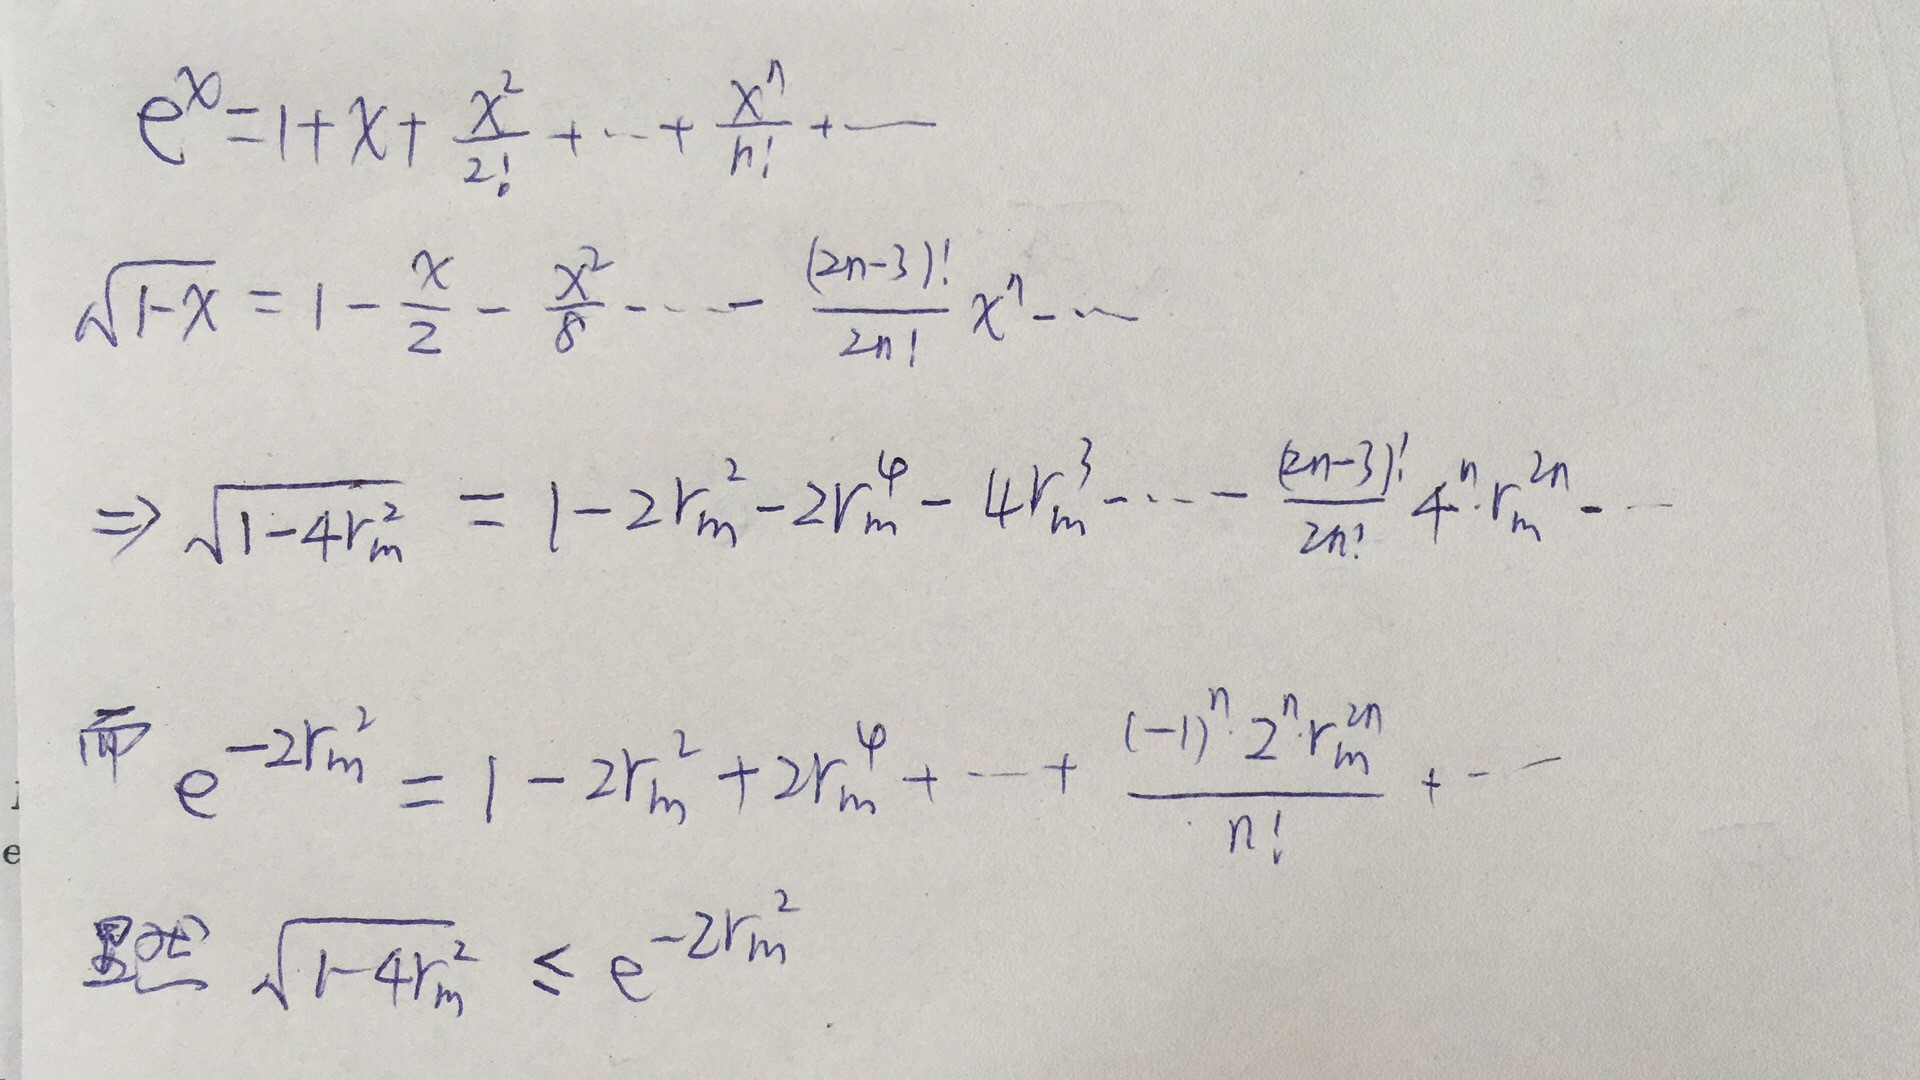 e^x = 1 + x + x^2/2! + ... + x^n/n! + ...
√(1-x) = 1 - x/2 - x^2/8 - ... - (2n-3)!/2n! x^n - ...
⇒ √(1-4r_m^2) = 1 - 2r_m^2 - 2r_m^4 - 4r_m^3 - ... - (2n-3)!/2n! 4^n · r_m^{2n} - ...
而 e^{-2r_m^2} = 1 - 2r_m^2 + 2r_m^4 + ... + (-1)^n · 2^n · r_m^{2n}/n! + ...
e
显然 √(1-4r_m^2) ≤ e^{-2r_m^2}